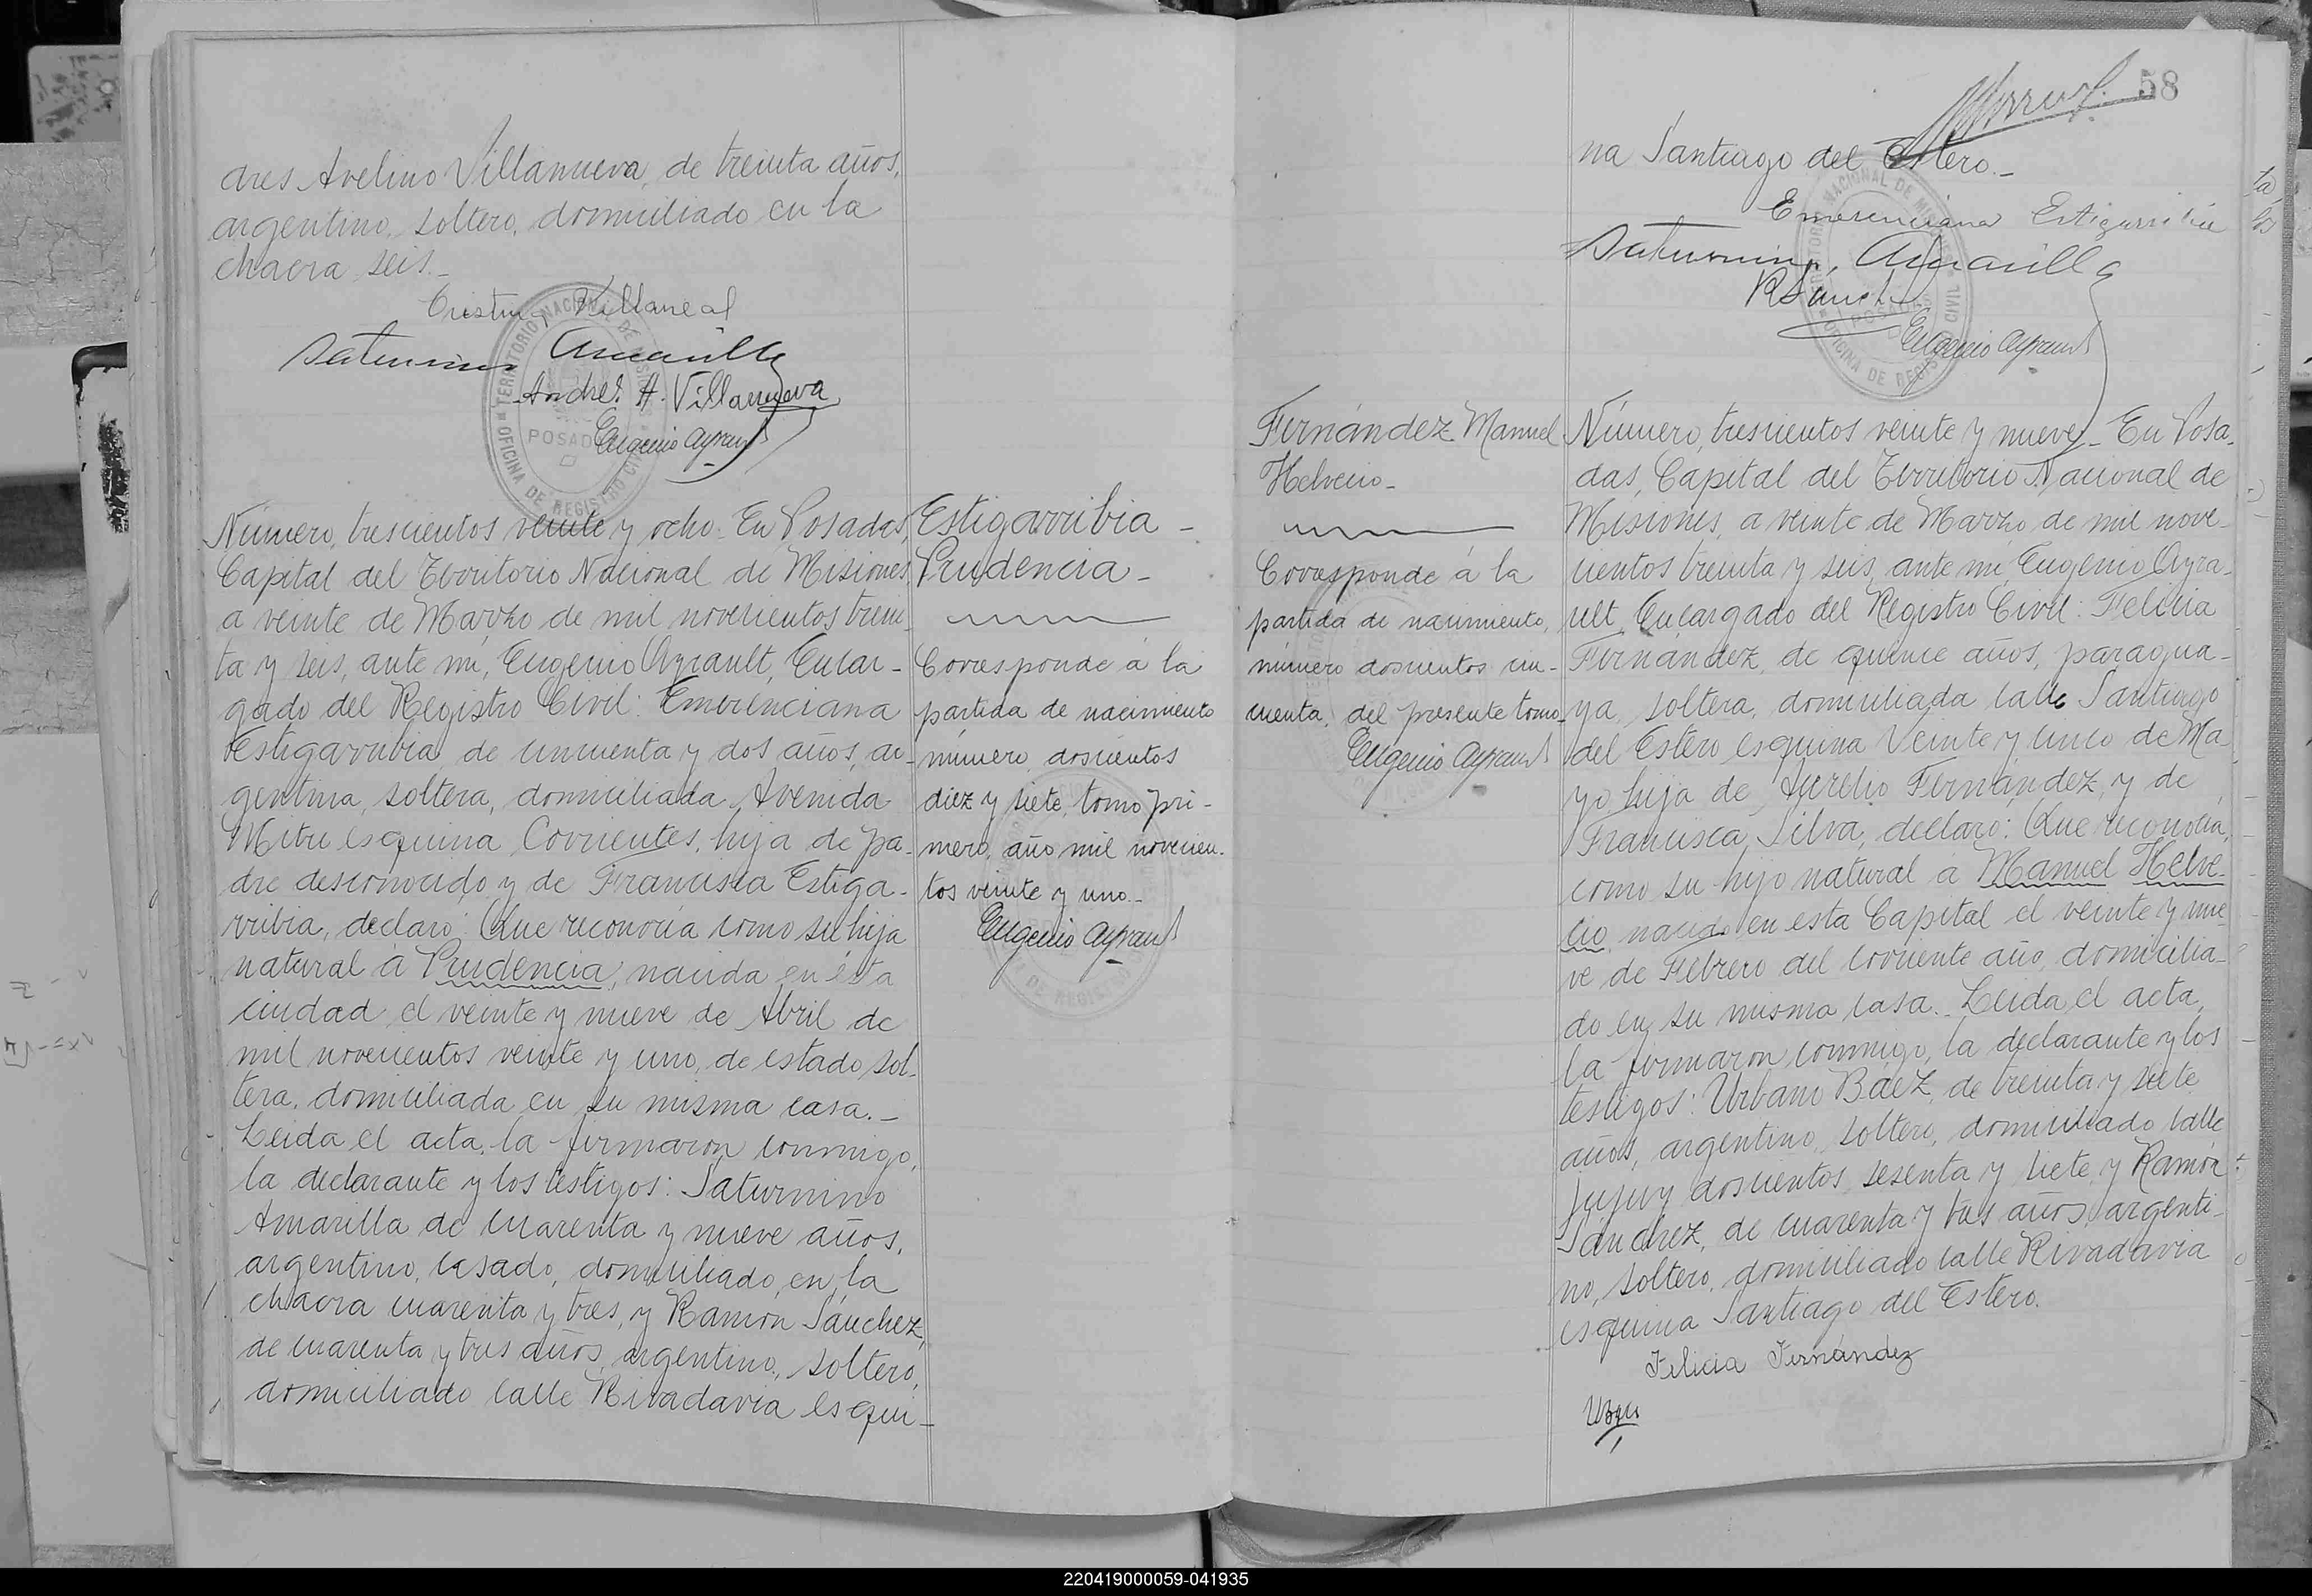 dres Avelino Villanueva, de treinta años,
argentino, soltero, domiciliado en la
chacra seis.-
Cristina Villareal
Saturnino Amarilla
Andres A. Villanueva
Eugenio Ayrault
TERRITORIO NACIONAL DE MISIONES
POSADAS
OFICINA DE REGISTRO CIVIL
Número, trescientos veinte y ocho. En Posadas,
Capital del Territorio Nacional de Misiones
a veinte de Marzo de mil novecientos trein-
ta y seis, ante mí, Eugenio Ayrault, Encar-
gado del Registro Civil: Emerenciana
Estigarribia, de cincuenta y dos años, ar-
gentina, soltera, domiciliada Avenida
Mitre esquina Corrientes, hija de pa-
dre desconocido y de Francisca Estiga-
rribia, declaró: Que reconocía como su hija
natural á Prudencia, nacida en ésta
ciudad el veinte y nueve de Abril de
mil novecientos veinte y uno, de estado sol-
tera, domiciliada en su misma casa.-
Leida el acta, la firmaron conmigo,
la declarante y los testigos: Saturnino
Amarilla de cuarenta y nueve años,
argentino, casado, domiciliado, en la
chacra cuarenta y tres, y Ramón Sánchez,
de cuarenta y tres años, argentino, soltero,
domiciliado calle Rivadavia esqui-
Estigarribia -
Prudencia -
Corresponde á la
partida de nacimiento
número doscientos
diez y siete, tomo pri-
mero, año mil novecien-
tos veinte y uno.-
Eugenio Ayrault
58
na Santiago del Estero.-
Emerenciana Estigarribia
Saturnino Amarilla
R Sanchez
Eugenio Ayrault
Fernández Manuel
Helvecio -
Corresponde á la
partida de nacimiento,
número doscientos cin-
cuenta, del presente tomo
Eugenio Ayrault
Número, trescientos veinte y nueve.- En Posa-
das, Capital del Territorio Nacional de
Misiones, a veinte de Marzo de mil nove-
cientos treinta y seis, ante mí, Eugenio Ayra-
ult, Encargado del Registro Civil: Felicia
Fernández, de quince años, paragua-
ya, soltera, domiciliada calle Santiago
del Estero esquina Veinte y cinco de Ma
yo, hija de Aurelio Fernández, y de
Francisca Silva, declaró: Que reconocía,
como su hijo natural a Manuel Helve-
cio, nacido en esta Capital el veinte y nue
ve de Febrero del corriente año, domicilia-
do en su misma casa.- Leida el acta,
la firmaron conmigo, la declarante y los
testigos: Urbano Báez, de treinta y siete
años, argentino, soltero, domiciliado calle
Jujuy doscientos sesenta y siete, y Ramón
Sánchez, de cuarenta y tres años, argenti-
no, soltero, domiciliado calle Rivadavia
esquina Santiago del Estero.
Felicia Fernández
220419000059-041935